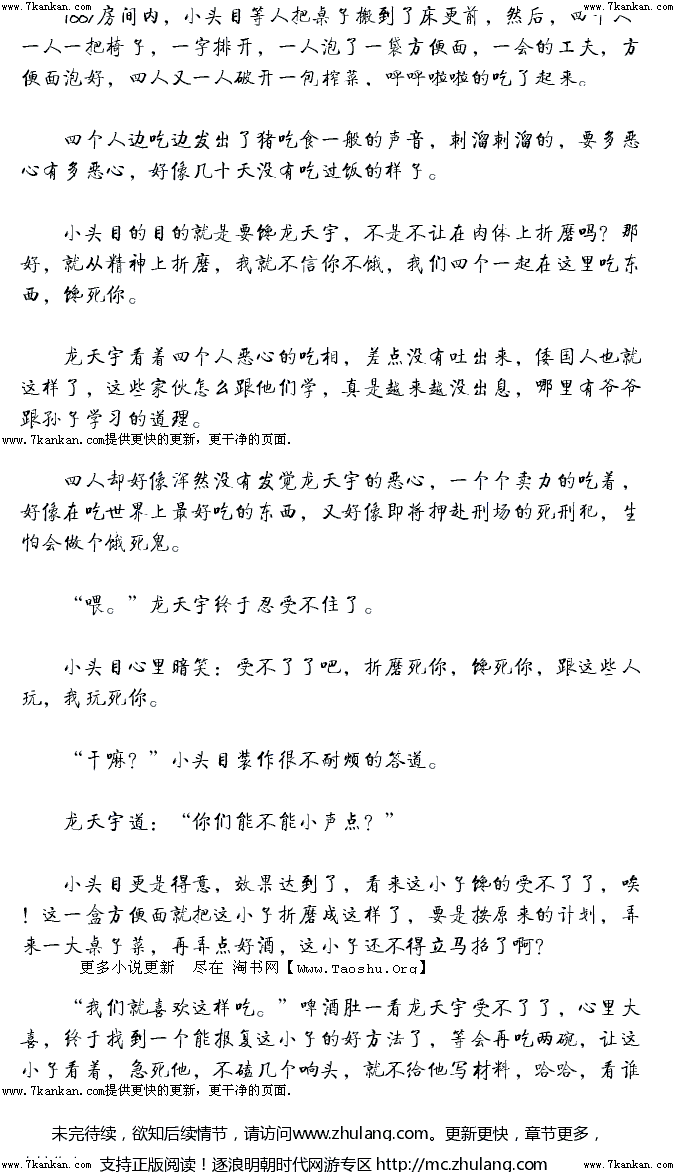 www.7kankan.com www.7kankan.com
1001房间内，小头目等人把桌子搬到了床更前，然后，四个人
一人一把椅子，一字排开，一人泡了一袋方便面，一会的工夫，方
便面泡好，四人又一人破开一包榨菜，呼呼啦啦的吃了起来。
四个人边吃边发出了猪吃食一般的声音，刺溜刺溜的，要多恶
心有多恶心，好像几十天没有吃过饭的样子。
小头目的目的就是要馋龙天宇，不是不让在肉体上折磨吗？那
好，就从精神上折磨，我就不信你不饿，我们四个一起在这里吃东
西，馋死你。
龙天宇看着四个人恶心的吃相，差点没有吐出来，倭国人也就
这样了，这些家伙怎么跟他们学，真是越来越没出息，哪里有爷爷
跟孙子学习的道理。
www.7kankan.com提供更快的更新，更干净的页面.
四人却好像浑然没有发觉龙天宇的恶心，一个个卖力的吃着，
好像在吃世界上最好吃的东西，又好像即将押赴刑场的死刑犯，生
怕会做个饿死鬼。
“喂。”龙天宇终于忍受不住了。
小头目心里暗笑：受不了了吧，折磨死你，馋死你，跟这些人
玩，我玩死你。
“干嘛？”小头目装作很不耐烦的答道。
龙天宇道：“你们能不能小声点？”
小头目更是得意，效果达到了，看来这小子馋的受不了了，唉
！这一盒方便面就把这小子折磨成这样了，要是按原来的计划，弄
来一大桌子菜，再弄点好酒，这小子还不得立马招了啊？
更多小说更新 尽在 淘书网【Www.Taoshu.Org】
“我们就喜欢这样吃。”啤酒肚一看龙天宇受不了了，心里大
喜，终于找到一个能报复这小子的好方法了，等会再吃两碗，让这
小子看着，急死他，不磕几个响头，就不给他写材料，哈哈，看谁
www.7kankan.com提供更快的更新，更干净的页面.
未完待续，欲知后续情节，请访问www.zhulang.com。更新更快，章节更多，
www.7kankan.com 支持正版阅读！逐浪明朝时代网游专区 http://mc.zhulang.com www.7kankan.com